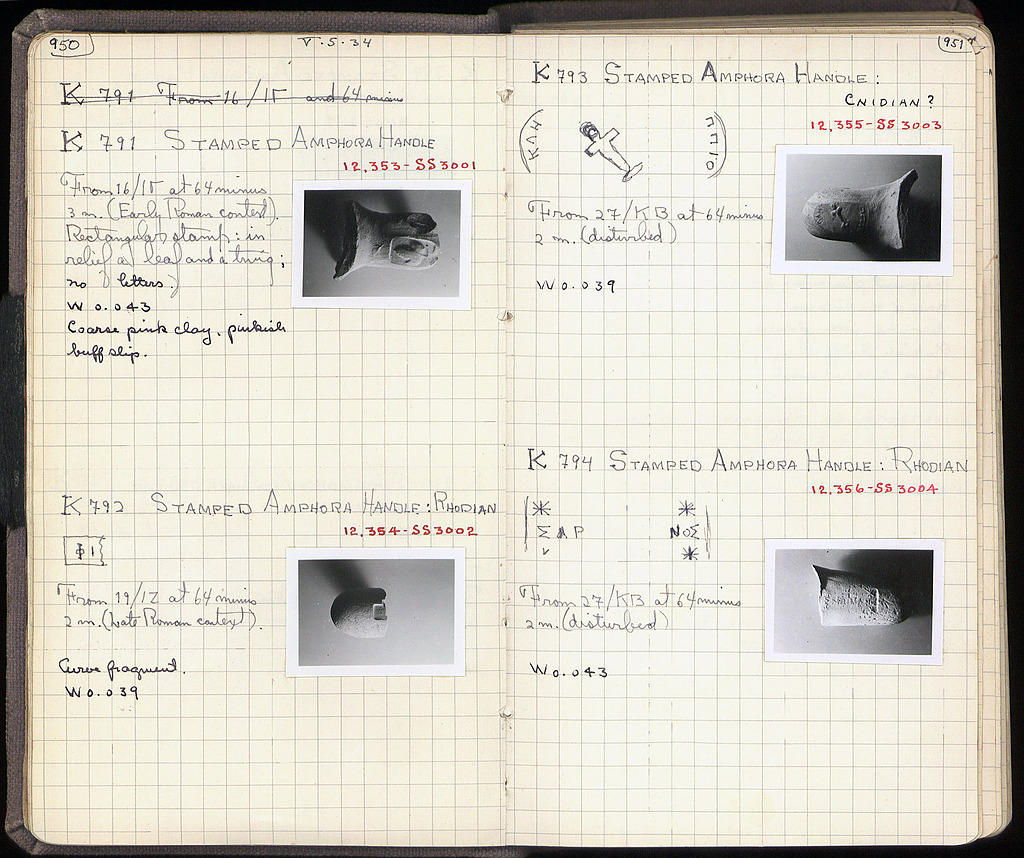 950
V·5·34
K 791 From 16/ΙΓ and 64 minus
K 791 STAMPED AMPHORA HANDLE
12,353-SS3001
From 16/ΙΓ at 64 minus
3 m. (Early Roman context).
Rectangular stamp: in
relief a leaf and a twig;
no letters.
W 0.043
Coarse pink clay, pinkish
buff slip.
K 792 STAMPED AMPHORA HANDLE: RHODIAN
12,354-SS3002
ΦΙ
From 19/ΙΖ at 64 minus
2 m. (Late Roman context).
Curve fragment.
W 0.039
951
K 793 STAMPED AMPHORA HANDLE:
CNIDIAN?
12,355-SS 3003
ΚΛΗ
ΟΙΠΠ
From 27/ΚΒ at 64 minus
2 m. (disturbed)
W 0.039
K 794 STAMPED AMPHORA HANDLE: RHODIAN
12,356-SS 3004
ΣΑΡ ΝΟΣ
From 27/ΚΒ at 64 minus
2 m. (disturbed)
W 0.043